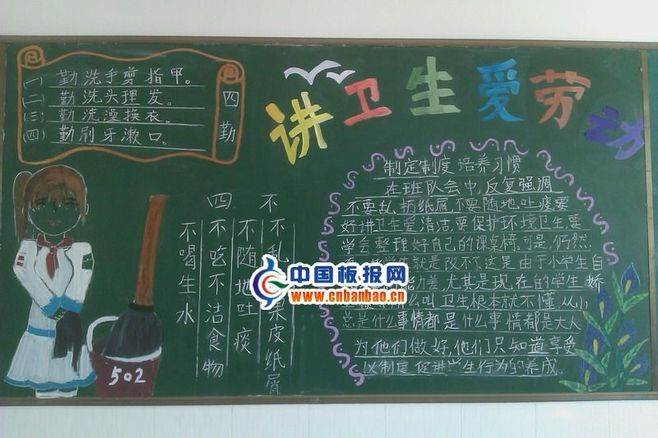 讲卫生爱劳动
四勤
(一) 勤洗手剪指甲。
(二) 勤洗头理发。
(三) 勤洗澡换衣。
(四) 勤刷牙漱口。
四不
不乱 果皮纸屑
不随地吐痰
不吃不洁食物
不喝生水
502
中国板报网
www.cnbanbao.cn
制定制度培养习惯
在班队会中,反复强调
不要乱扔纸屑不要随地吐痰要
好讲卫生爱清洁要保护环境卫生要
学会整理好自己的课桌椅,可是,仍然
学生就是改不了这是由于小学生自
尤其是现在的学生娇
么叫卫生根本就不懂从小
总是什么事情都是什么事情都是大人
为他们做好,他们只知道享受
以制度促进卫生行为的养成